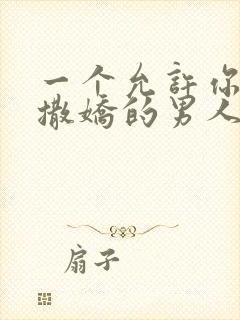 一个允許你
撒嬌的男人
扇子